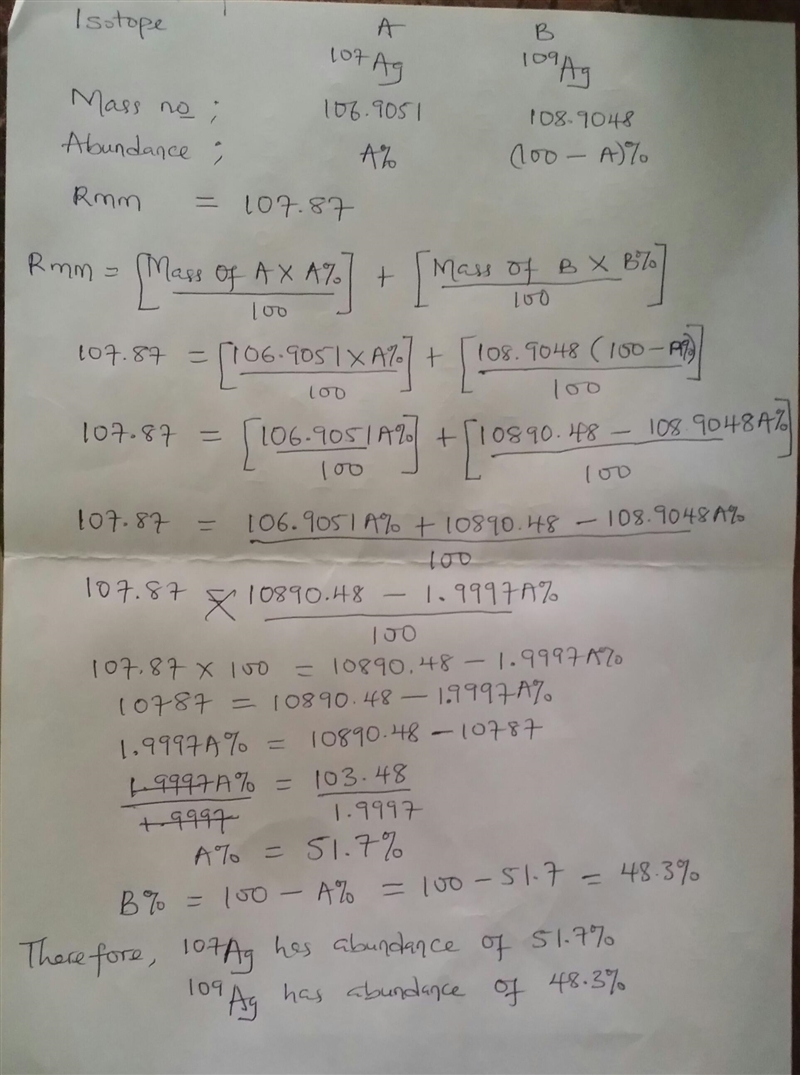 Isotope A B
¹⁰⁷Ag ¹⁰⁹Ag
Mass no; 106.9051 108.9048
Abundance; A% (100 - A)%
Rmm = 107.87
Rmm = [Mass of A X A% / 100] + [Mass of B X B% / 100]
107.87 = [106.9051 X A% / 100] + [108.9048 (100 - A%) / 100]
107.87 = [106.9051A% / 100] + [10890.48 - 108.9048A% / 100]
107.87 = 106.9051A% + 10890.48 - 108.9048A% / 100
107.87 = 10890.48 - 1.9997A% / 100
107.87 X 100 = 10890.48 - 1.9997A%
10787 = 10890.48 - 1.9997A%
1.9997A% = 10890.48 - 10787
1.9997A% / 1.9997 = 103.48 / 1.9997
A% = 51.7%
B% = 100 - A% = 100 - 51.7 = 48.3%
Therefore, ¹⁰⁷Ag has abundance of 51.7%
¹⁰⁹Ag has abundance of 48.3%